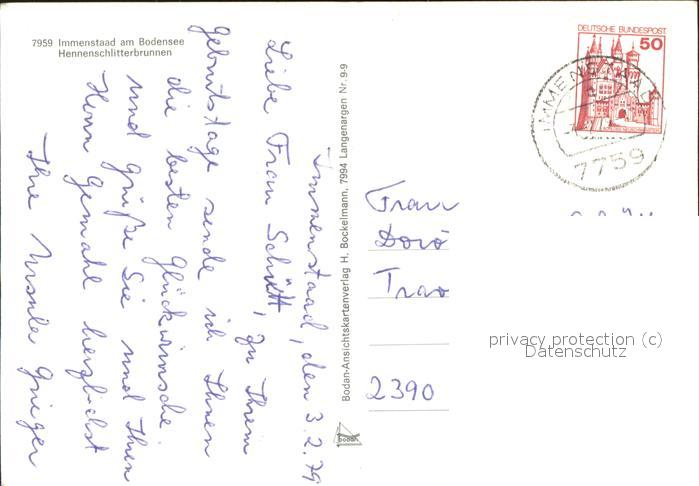 7959 Immenstaad am Bodensee
Hennenschlitterbrunnen
Immenstaad, den 3.2.79
Liebe Frau Schütt, zu Ihrem
Geburtstage sende ich Ihnen
die besten Glückwünsche
und grüße Sie und Ihren
Herrn Gemahl herzlichst
Ihre Ursula
Bodan-Ansichtskartenverlag H. Bockelmann, 7994 Langenargen Nr. 9-9
bodan
DEUTSCHE BUNDESPOST
50
IMMENSTAAD
7759
Frau
Tra
2390
privacy protection (c)
Datenschutz